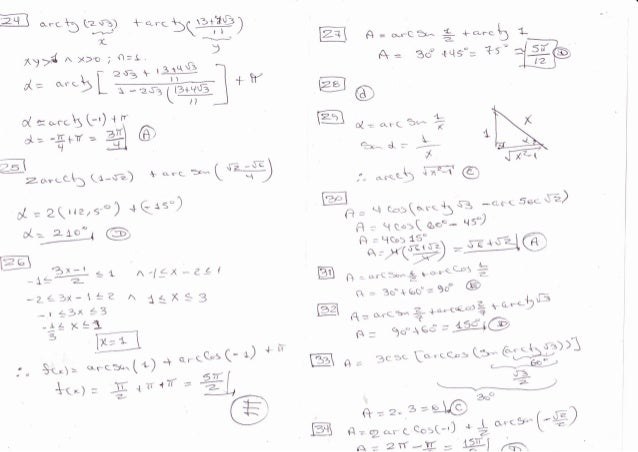 24 arctg (2√3) + arctg (13+4√3 / 11)
x y
xy>1 ∧ x>0 ; n=1.
α = arctg [ (2√3 + (13+4√3)/11) / (1-2√3 ((13+4√3)/11)) ] + π
α = arctg (-1) + π
α = -π/4 + π = 3π/4 (A)
25
2arcctg (1-√2) + arc sen ( (√2-√6)/4 )
α = 2(112,5°) + (-15°)
α = 210° (D)
26
-1 ≤ (3x-1)/2 ≤ 1 ∧ -1 ≤ x-2 ≤ 1
-2 ≤ 3x-1 ≤ 2 ∧ 1 ≤ x ≤ 3
-1 ≤ 3x ≤ 3
-1/3 ≤ x ≤ 1
x=1
∴ f(x) = arcsen (1) + arc Cos (-1) + π
f(x) = π/2 + π + π = 5π/2
(E)
27 A = arc sen 1/2 + arctg 1
A = 30° + 45° = 75° = 5π/12 (D)
28
(d)
29 α = arc sen 1/x
Sen α = 1/x
1 x α √x²-1
∴ arcctg √x²-1 (C)
30
A = 4 Cos (arctg √3 - arc Sec √2)
A = 4 Cos ( 60° - 45°)
A = 4 Cos 15°
A = 4 (√6+√2)/4 = √6+√2 (A)
31 A = arcsen 1/2 + arc Cos 1/2
A = 30° + 60° = 90°
32 A = arc sen 2/7 + arccos 2/7 + arctg √3
A = 90° + 60° = 150° (D)
33 A = 3csc [arc Cos (Sen (arctg √3))]
60°
√3/2
30°
A = 2. 3 = 6 (C)
34 A = 2 arc Cos (-1) + 1/2 arcsen (-√2/2)
A = 2π - π/8 = 15π/8 (D)